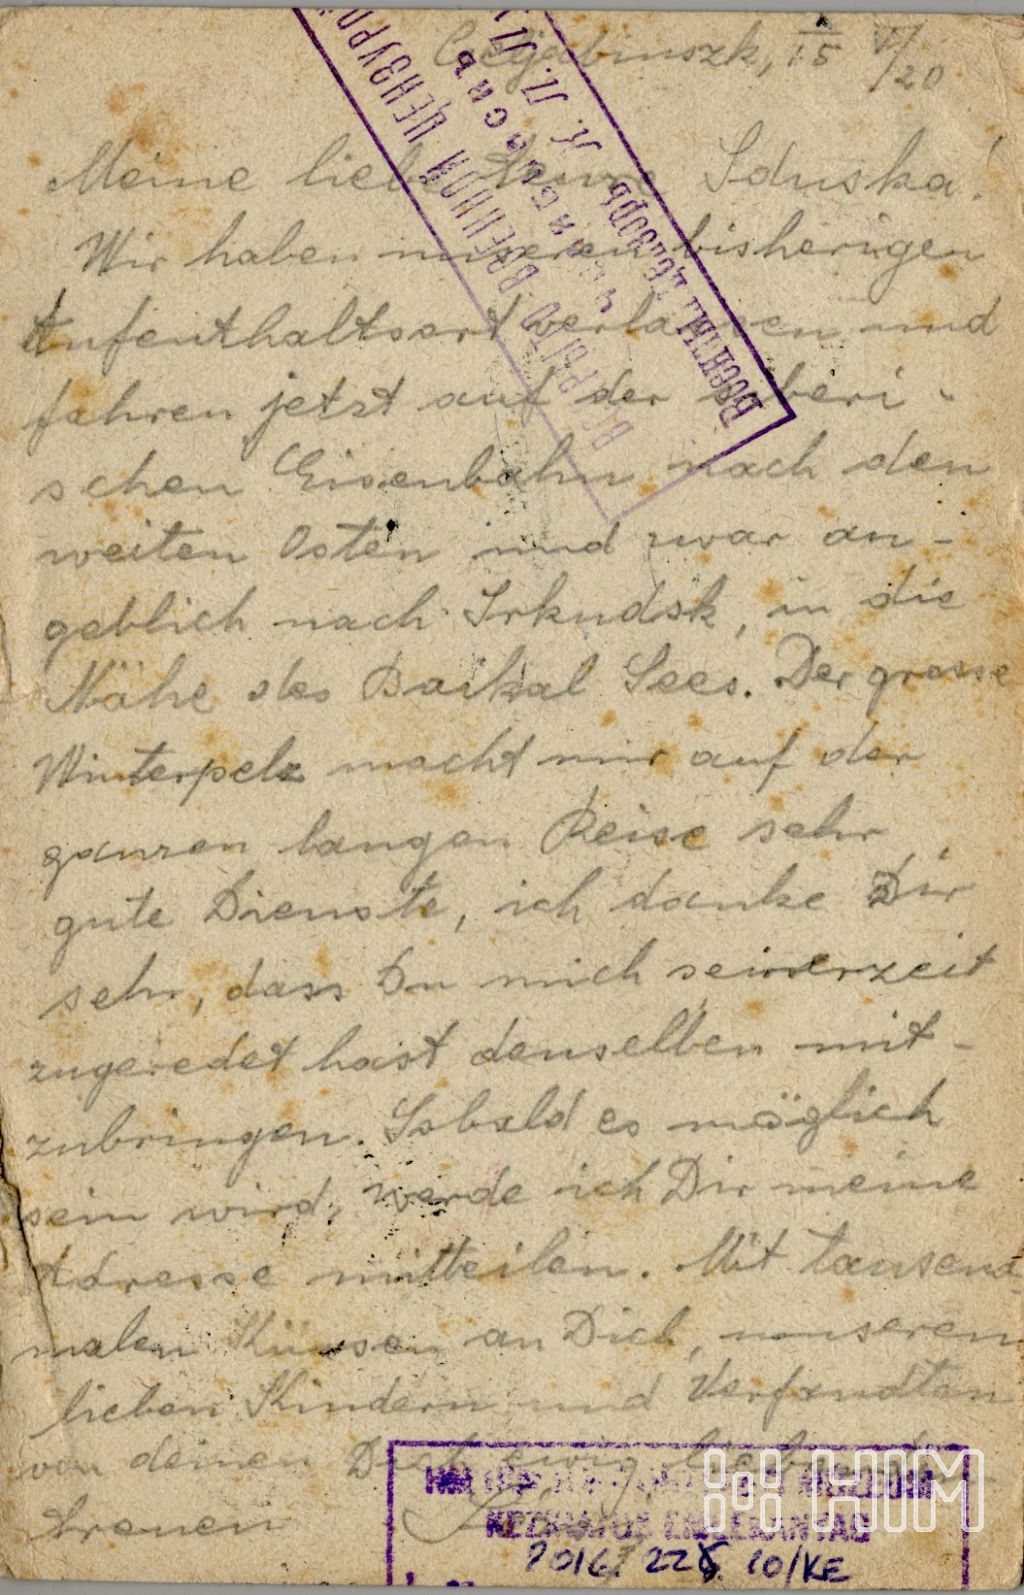 Cseljabinszk, 15 VI/20
Meine liebe teure Iduska!
Wir haben unseren bisherigen
Aufenthaltsort verlassen und
fahren jetzt auf der siberi-
schen Eisenbahn nach den
weiten Osten und zwar an-
geblich nach Irkudsk, in die
Nähe des Baikal Sees. Der grosse
Winterpelz macht mir auf der
ganzen langen Reise sehr
gute Dienste, ich danke Dir
sehr, dass Du mich seinerzeit
zugeredet hast denselben mit-
zubringen. Sobald es möglich
sein wird, werde ich Dir meine
Adresse mitteilen. Mit tausend
malen Küssen an Dich, unseren
lieben Kindern und Verfandten
von deinen Dich ewig liebenden
treuen
ВСКРЫТО ВОЕННОЙ ЦЕНЗУРОЙ
Военный Цензоръ
HADTÖRTÉNETI MÚZEUM
KÉZIRATOS EMLÉKANYAG
2016. 228. 10/KE
HIM